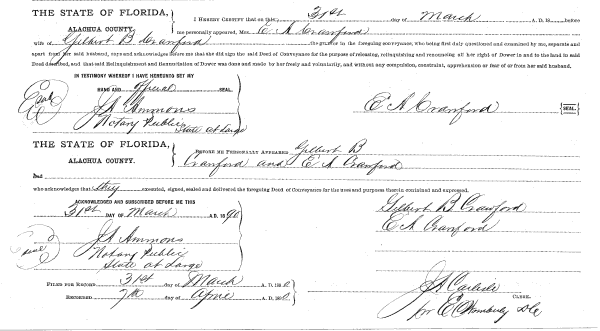 THE STATE OF FLORIDA,
ALACHUA COUNTY.
I HEREBY CERTIFY that on this, 31st day of March A. D. 18 before
me personally appeared, Mrs. E. A. Cranford
wife of Gilbert B. Cranford the grantor in the foregoing conveyance, who being first duly questioned and examined by me, separate and
apart from her said husband, says and acknowledges before me that she did sign the said Deed of Conveyance for the purpose of relaxing, relinquishing and renouncing all her right of Dower in and to the land in said
Deed described, and that said Relinquishment and Renunciation of Dower was done and made by her freely and voluntarily, and without any compulsion, constraint, apprehension or fear of or from her said husband.
IN TESTIMONY WHEREOF I HAVE HEREUNTO SET MY
HAND AND official SEAL.
Seal
J A Ammons
Notary Public
State at Large
E A Cranford
SEAL
THE STATE OF FLORIDA,
ALACHUA COUNTY.
BEFORE ME PERSONALLY APPEARED Gilbert B
Cranford and E A Cranford
And
who acknowledge that they executed, signed, sealed and delivered the foregoing Deed of Conveyance for the uses and purposes therein contained and expressed.
ACKNOWLEDGED AND SUBSCRIBED BEFORE ME THIS
31st DAY OF March A. D. 1890
Gilbert B Cranford
E A Cranford
Seal
J A Ammons
Notary Public
State at Large
FILED FOR RECORD 31st day of March A. D. 1890
RECORDED 7th day of April A. D. 1890
J A Carlisle
CLERK.
per E D C